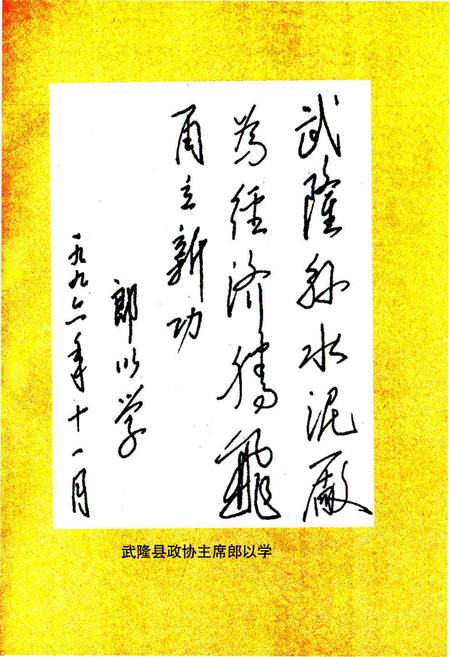 武隆县水泥厰
为经济腾飞
再立新功
郎以学
一九九六年十一月
武隆县政协主席郎以学